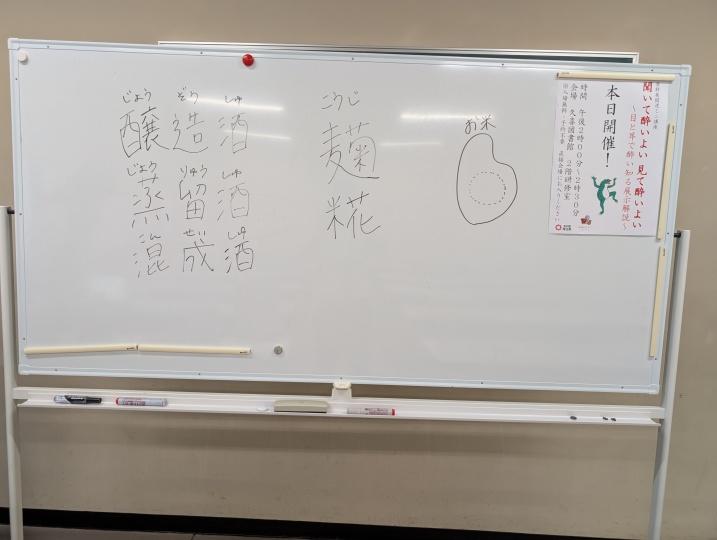 じょう ぞう しゅ
醸造酒
じょう りゅう しゅ
蒸留酒
こん せい しゅ
混成酒
こうじ
麹
糀
お米
聞いて酔いよい 見て酔いよい
～目と耳で酔い知る展示解説～
本日開催！
時間 午後2時00分～2時30分
会場 久喜図書館 2階研修室